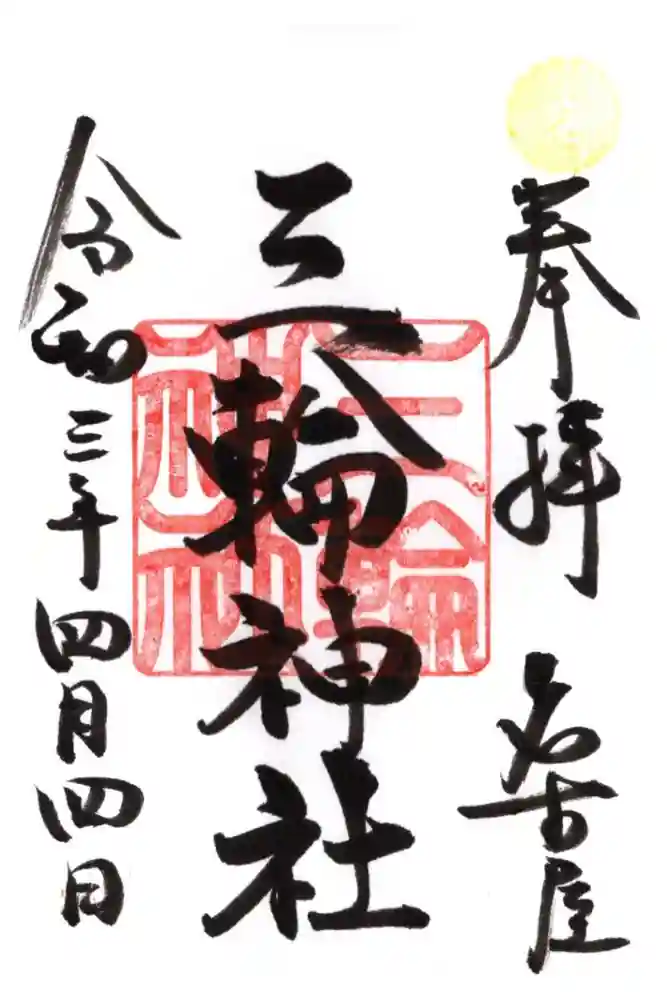 奉拝 名古屋
三輪神社
令和三年四月四日
三輪神社